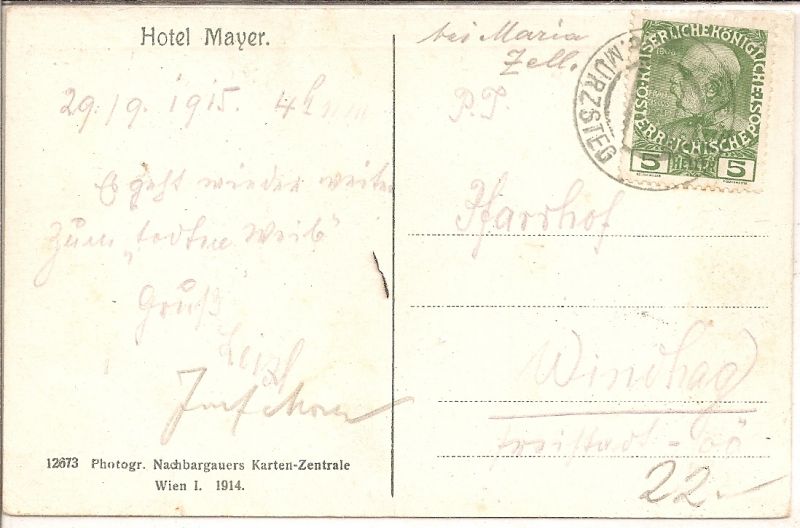 Hotel Mayer.
29./9. 1915. 4h
Es geht wieder weiter
zum „todten Weib"
Gruß
bei Maria
Zell.
P. T.
Pfarrhof
Windhag
Freistadt - OÖ
22.-
MÜRZSTEG
KAISERLICHE KÖNIGLICHE ÖSTERREICHISCHE POST
5 HELLER 5
12673 Photogr. Nachbargauers Karten-Zentrale
Wien I. 1914.